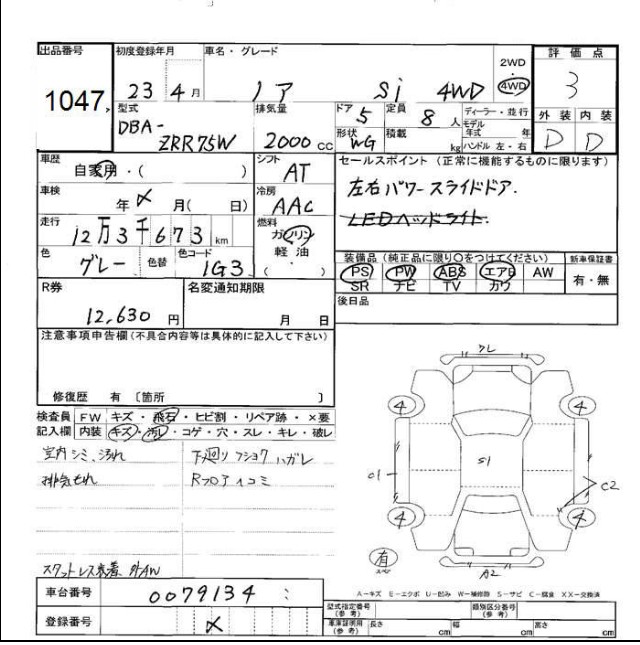 出品番号 初度登録年月 車名・グレード 評価点
1047 23 4月 ノア Si 4WD 2WD・4WD 3
型式 排気量 ドア 定員 ディーラー・並行 外装 内装
DBA-ZRR75W 2000cc 5 8人 モデル年式 年 D D
形状 WG 積載 kg ハンドル 左・右
車歴 自家用・( ) シフト AT セールスポイント(正常に機能するものに限ります)
車検 年 月( 日) 冷房 AAC 左右パワースライドドア.
走行 12万3千673km 燃料 ガソリン 軽油 ( ) LEDヘッドライト
色 グレー 色替 色コード 1G3 装備品(純正品に限り○をつけてください) 新車保証書
PS PW ABS エアB AW 有・無
SR ナビ TV カワ
R券 名変通知期限 後日品
12,630円 月 日
注意事項申告欄(不具合内容等は具体的に記入して下さい)
修復歴 有〔箇所 〕
検査員 FW キズ・飛石・ヒビ割・リペア跡・×要
記入欄 内装 キズ・汚レ・コゲ・穴・スレ・キレ・破レ
室内シミ、汚れ 下廻リフショクハガレ
排気もれ Rフロアイコミ
スタットレス装着 外AW
4 4
C1 S1 C2
4 4
有 A2
A-キズ E-エクボ U-凹み W-補修跡 S-サビ C-腐食 XX-交換済
車台番号 0079134
登録番号 メ
型式指定番号(参考) 類別区分番号(参考)
車庫証明用(参考) 長さ cm 幅 cm 高さ cm